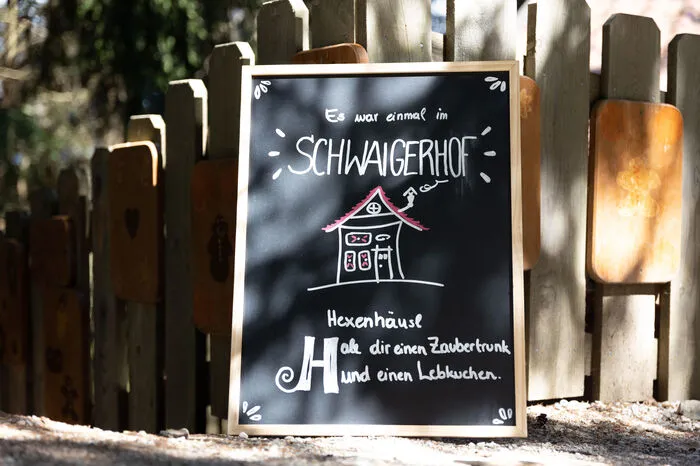 Es war einmal im
SCHWAIGERHOF
Hexenhäusl
Hole dir einen Zaubertrunk
und einen Lebkuchen.